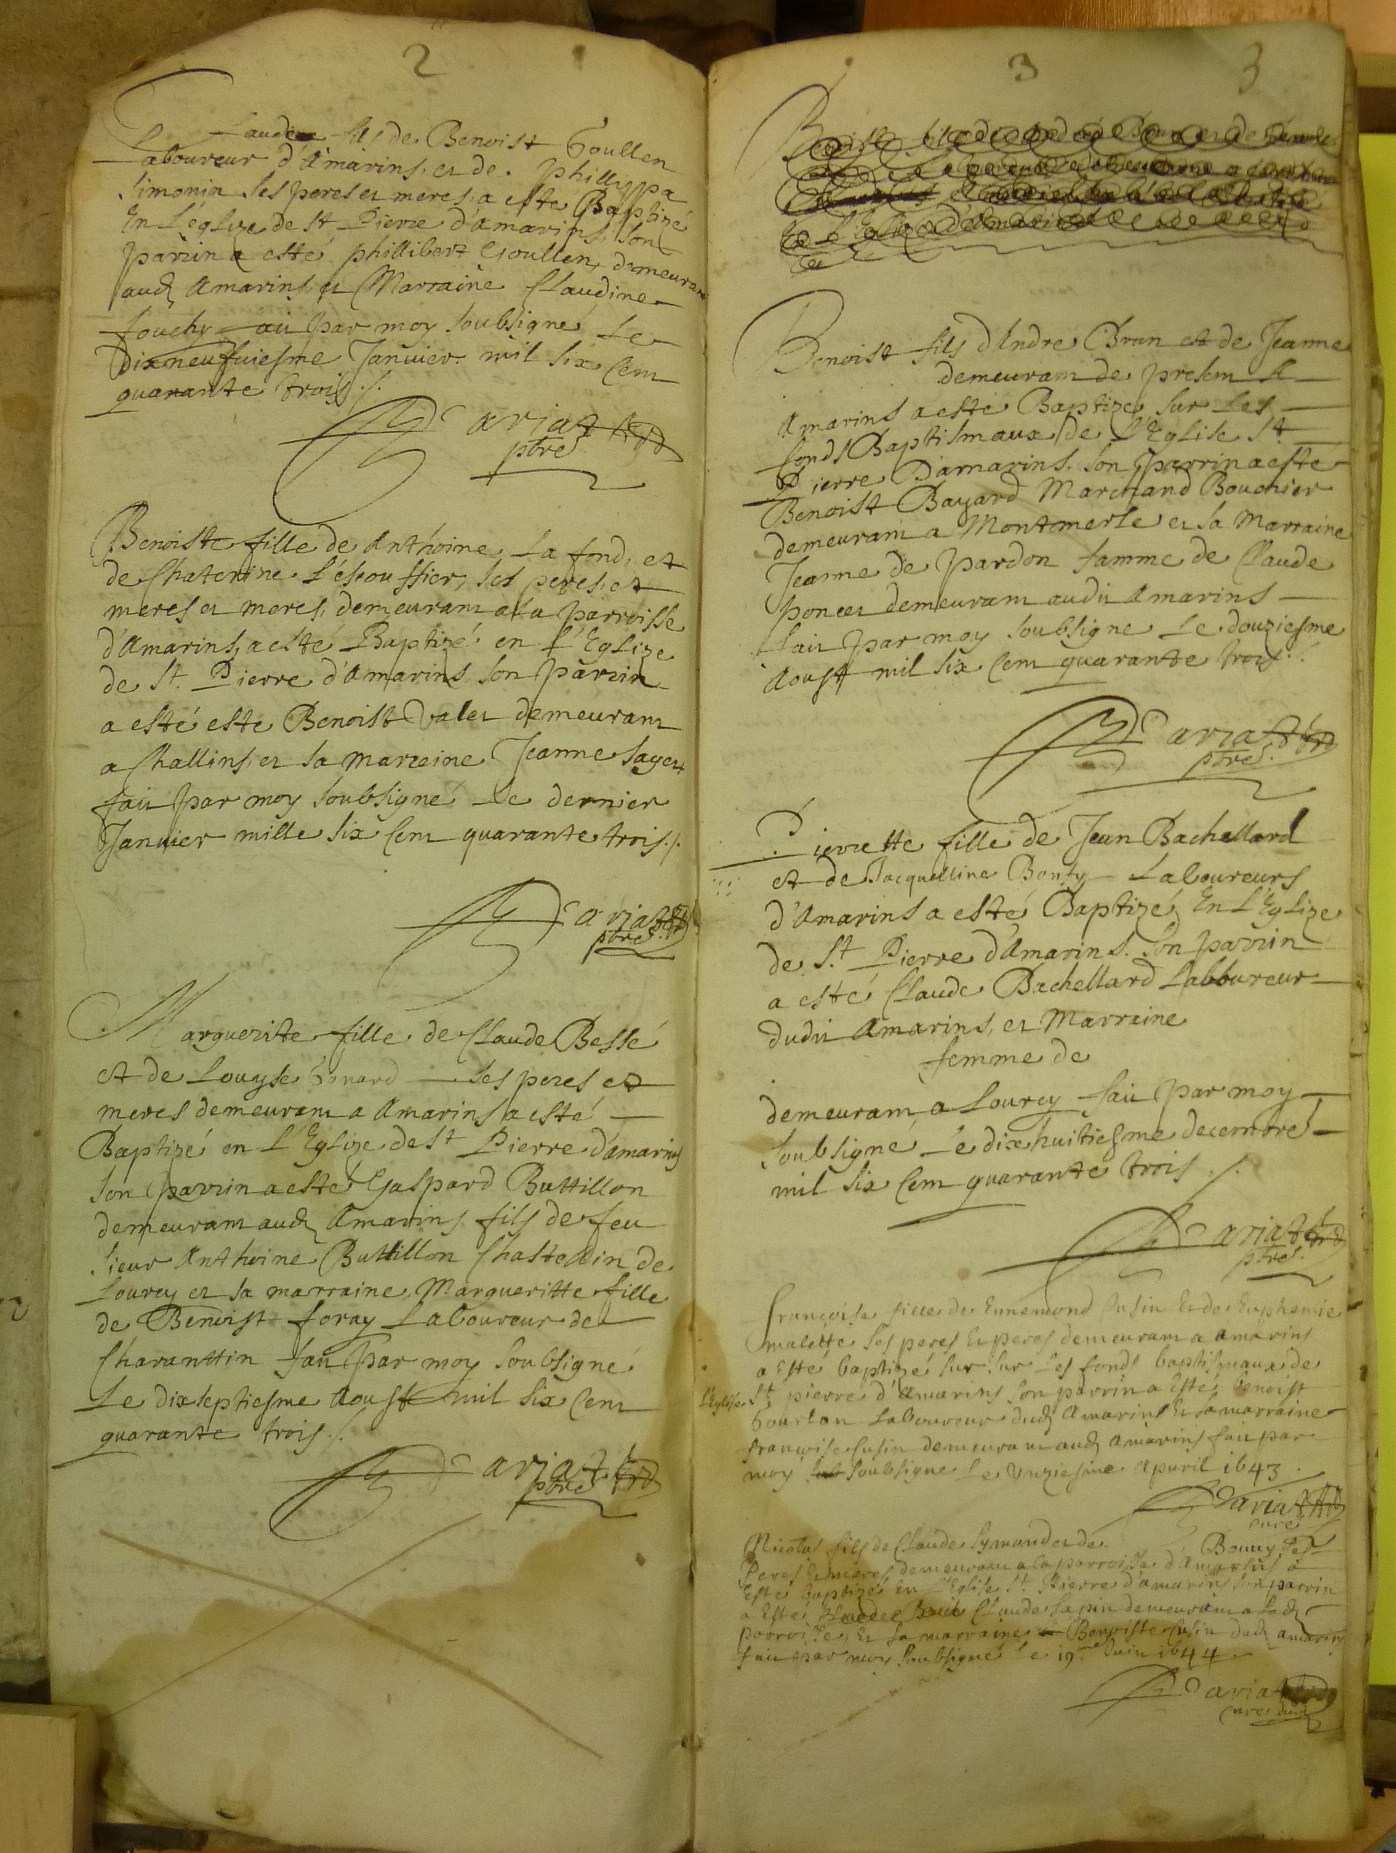 2
Claude fils de Benoist Goullen
Laboureur d'Amarins et de. phillippa
Simonin ses peres et meres, a esté Baptizé
En L'églize de St Pierre d'amarins, son
parrin a esté phillibert Goullen, demeurant
aud. Amarins, et Marraine Claudine
fouchy fait par moy soubsigné Le
Dixneufuiesme Januier mil six cent
quarante trois ./.
Dariat
pbre
Benoiste fille de Anthoine La fond, et
de Chaterine L'escouffier, ses peres, et
meres et meres, demeurant a La parroisse
d'Amarins, a esté Baptizé en L'Eglize
de St. Pierre d'Amarins son parrin
a esté este Benoist Valet demeurant
a Challins, et sa marreine Jeanne Sayet
fait par moy soubsigné Le dernier
Januier mille six Cent quarante trois ./.
Dariat
pbre
Marguerite fille de Claude Bessé
et de Louyse ses peres et
meres demeurant a Amarins a esté
Baptizé en L'Eglize de St Pierre d'amarins
son parrin a esté Gaspard Buttillon
demeurant aud. Amarins fils de feu
sieur Anthoine Buttillon Chastellin de
Lourcy et sa marraine Margueritte fille
de Benoist foray Laboureur de
Charanttin fait par moy soubsigné
Le dixseptiesme Aoust mil six Cent
quarante trois ./.
Dariat
pbre
3 3
Benoist fils d'Andre Brun et de Jeanne
demeurant de present A
Amarins a esté Baptizé sur Les
fonds Baptismaux de L'Eglise St
Pierre D'amarins. son parrin a esté
Benoist Bayard Marchand Bouchier
demeurant a Montmerle et sa Marraine
Jeanne de pardon famme de Claude
poncet demeurant audit Amarins
fait par moy soubsigne Le douziesme
Aoust mil six Cent quarante trois ./.
Dariat
pbre
Pierrette fille de Jean Bachellard
et de Jacquelline Bonty Laboureurs
d'Amarins a esté Baptizé En L'Eglize
de St. Pierre d'Amarins. Son parrin
a esté Claude Bachellard Labbureur
dudit Amarins, et Marraine
femme de
demeurant a Lourcy fait par moy
soubsigné Le dixhuitiesme decembre
mil six Cent quarante trois ./.
Dariat
pbre
françoise fille de Ennemond Cusin Et de Euphemie
malette ses peres Et peres demeurant a Amarins
a Esté baptizé sur sur Les fonds baptismaux de
L'Eglise St pierre d'Amarins son parrin a Esté, Benoist
Gourlan Laboureur dud. Amarins Et sa marraine
françoise Cusin demeurant aud. Amarins fait par
moy soubsigne Le Unziesme Apuril 1643
Dariat
cure
Nicolas fils de Claude Symand et de Bouuy ses
Peres Et meres demeurant a la parroisse d'Amarins a
Esté baptizé En L'Eglise St Pierre d'amarins son parrin
a Esté Claude Sapin demeurant a Lad.
parroisse, Et sa marraine Benoiste Cusin dud. amarins
fait par moy soubsigné Le 19me Juin 1644
Dariat
cure dud.